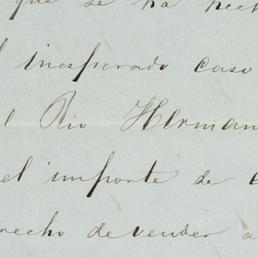 que se ha hech
l inesperado caso
l Rio Herman
el importe de
recho de vender a